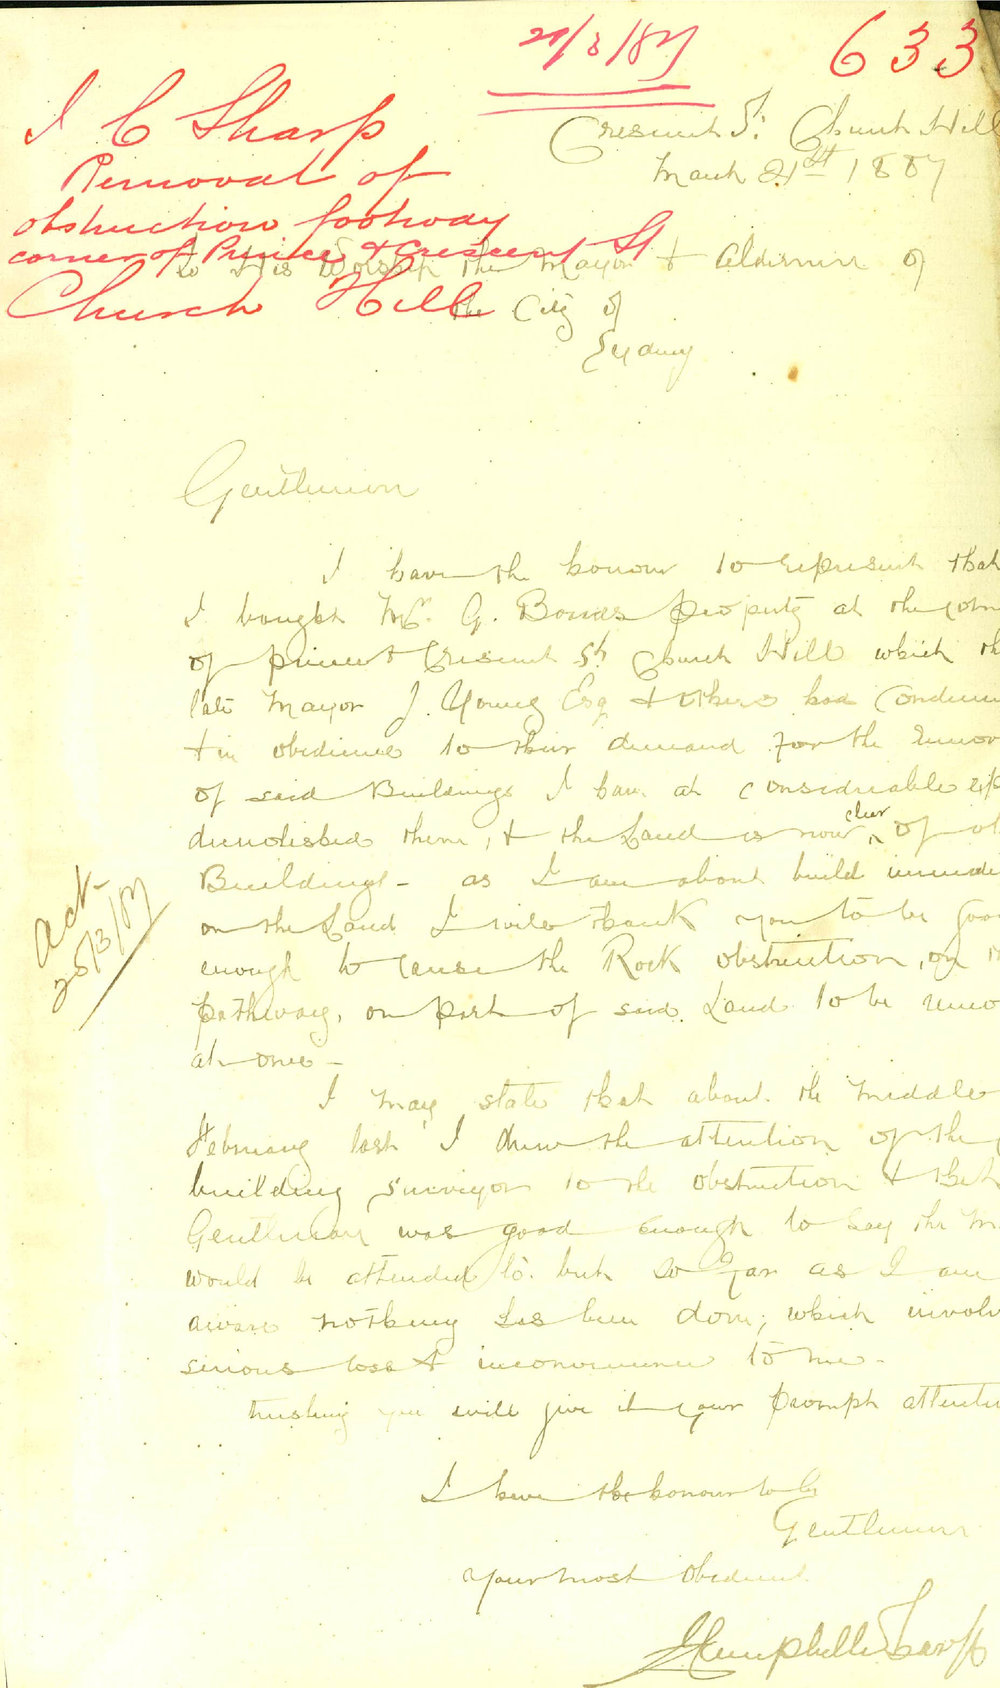 21/3/87
633
J C Sharp
Removal of
obstruction footway
corner of Prince & Crescent St
Church Hill
Cresent St Church Hill
March 21st 1887
To His Worship the Mayor & Aldermen of
the City of
Sydney
Gentlemen
I have the honour to represent that
I bought Mr. G. property at the corn
of prince & Cresent St Church Hill which th
late Mayor J. Young Esq & others had Condem
& in obedience to their demand for the remov
of said Buildings I have at considerable exp
demolished them, & the Land is now clear of
Buildings - as I am about build immedi
on the Land I will thank you to be good
enough to cause the Rock obstruction, on
pathway, on part of said Land to be remo
at once -
I may state that about the middle
February last I drew the attention of the
building surveyor to the obstruction & that
Gentleman was good enough to say the M
would be attended to. but so far as I am
aware nothing has been done; which involv
serious loss & inconvenience to me -
trusting you will give it your prompt attentio
I have the honour to be
Gentlemen
Your most obedient
J Campbell Sharp
Act
25/3/87